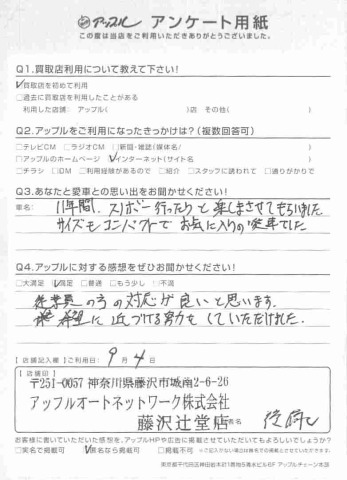 アップル アンケート用紙
この度は当店をご利用いただきありがとうございました。
Q1.買取店利用について教えて下さい!
☑買取店を初めて利用
□過去に買取店を利用したことがある
利用した店舗: アップル( )店 その他( )
Q2.アップルをご利用になったきっかけは?(複数回答可)
□テレビCM □ラジオCM □新聞・雑誌(媒体名/ )
□アップルのホームページ ☑インターネット(サイト名 )
□チラシ □DM □利用経験があるので □紹介 □スタッフに誘われて □通りがかりで
Q3.あなたと愛車との思い出をお聞かせください!
車名: 11年間、スノボー行ったりと楽しまさせてもらいました
サイズもコンパクトでお気に入りの愛車でした
Q4.アップルに対する感想をぜひお聞かせください!
□大満足 ☑満足 □普通 □もう少し □不満
従業員の方の対応が良いと思います。
希望に近づける努力もしていただけました。
【店舗記入欄】ご利用日: 9月4日
【店舗印】
〒251-0057 神奈川県藤沢市城南2-6-26
アップルオートネットワーク株式会社
藤沢辻堂店 署名
お客様に書いていただいた感想を、アップルHPや広告に掲載させていただいてもよろしいでしょうか?
□実名で掲載可 ☑匿名なら掲載可 □掲載不可 ※ご記入がない場合は無名での掲載とさせていただきます。
東京都千代田区神田佐木町1番地5清水ビル6F アップルチェーン本部